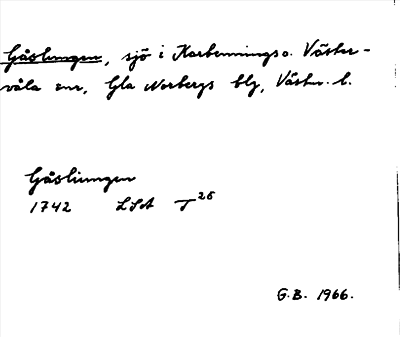 Gåslungen, sjö i Karbennings o. Väster-
våla snr, Gla Norbergs blg, Västm. l.
Gåsliungen
1742 LSA T 26
G.B. 1966.